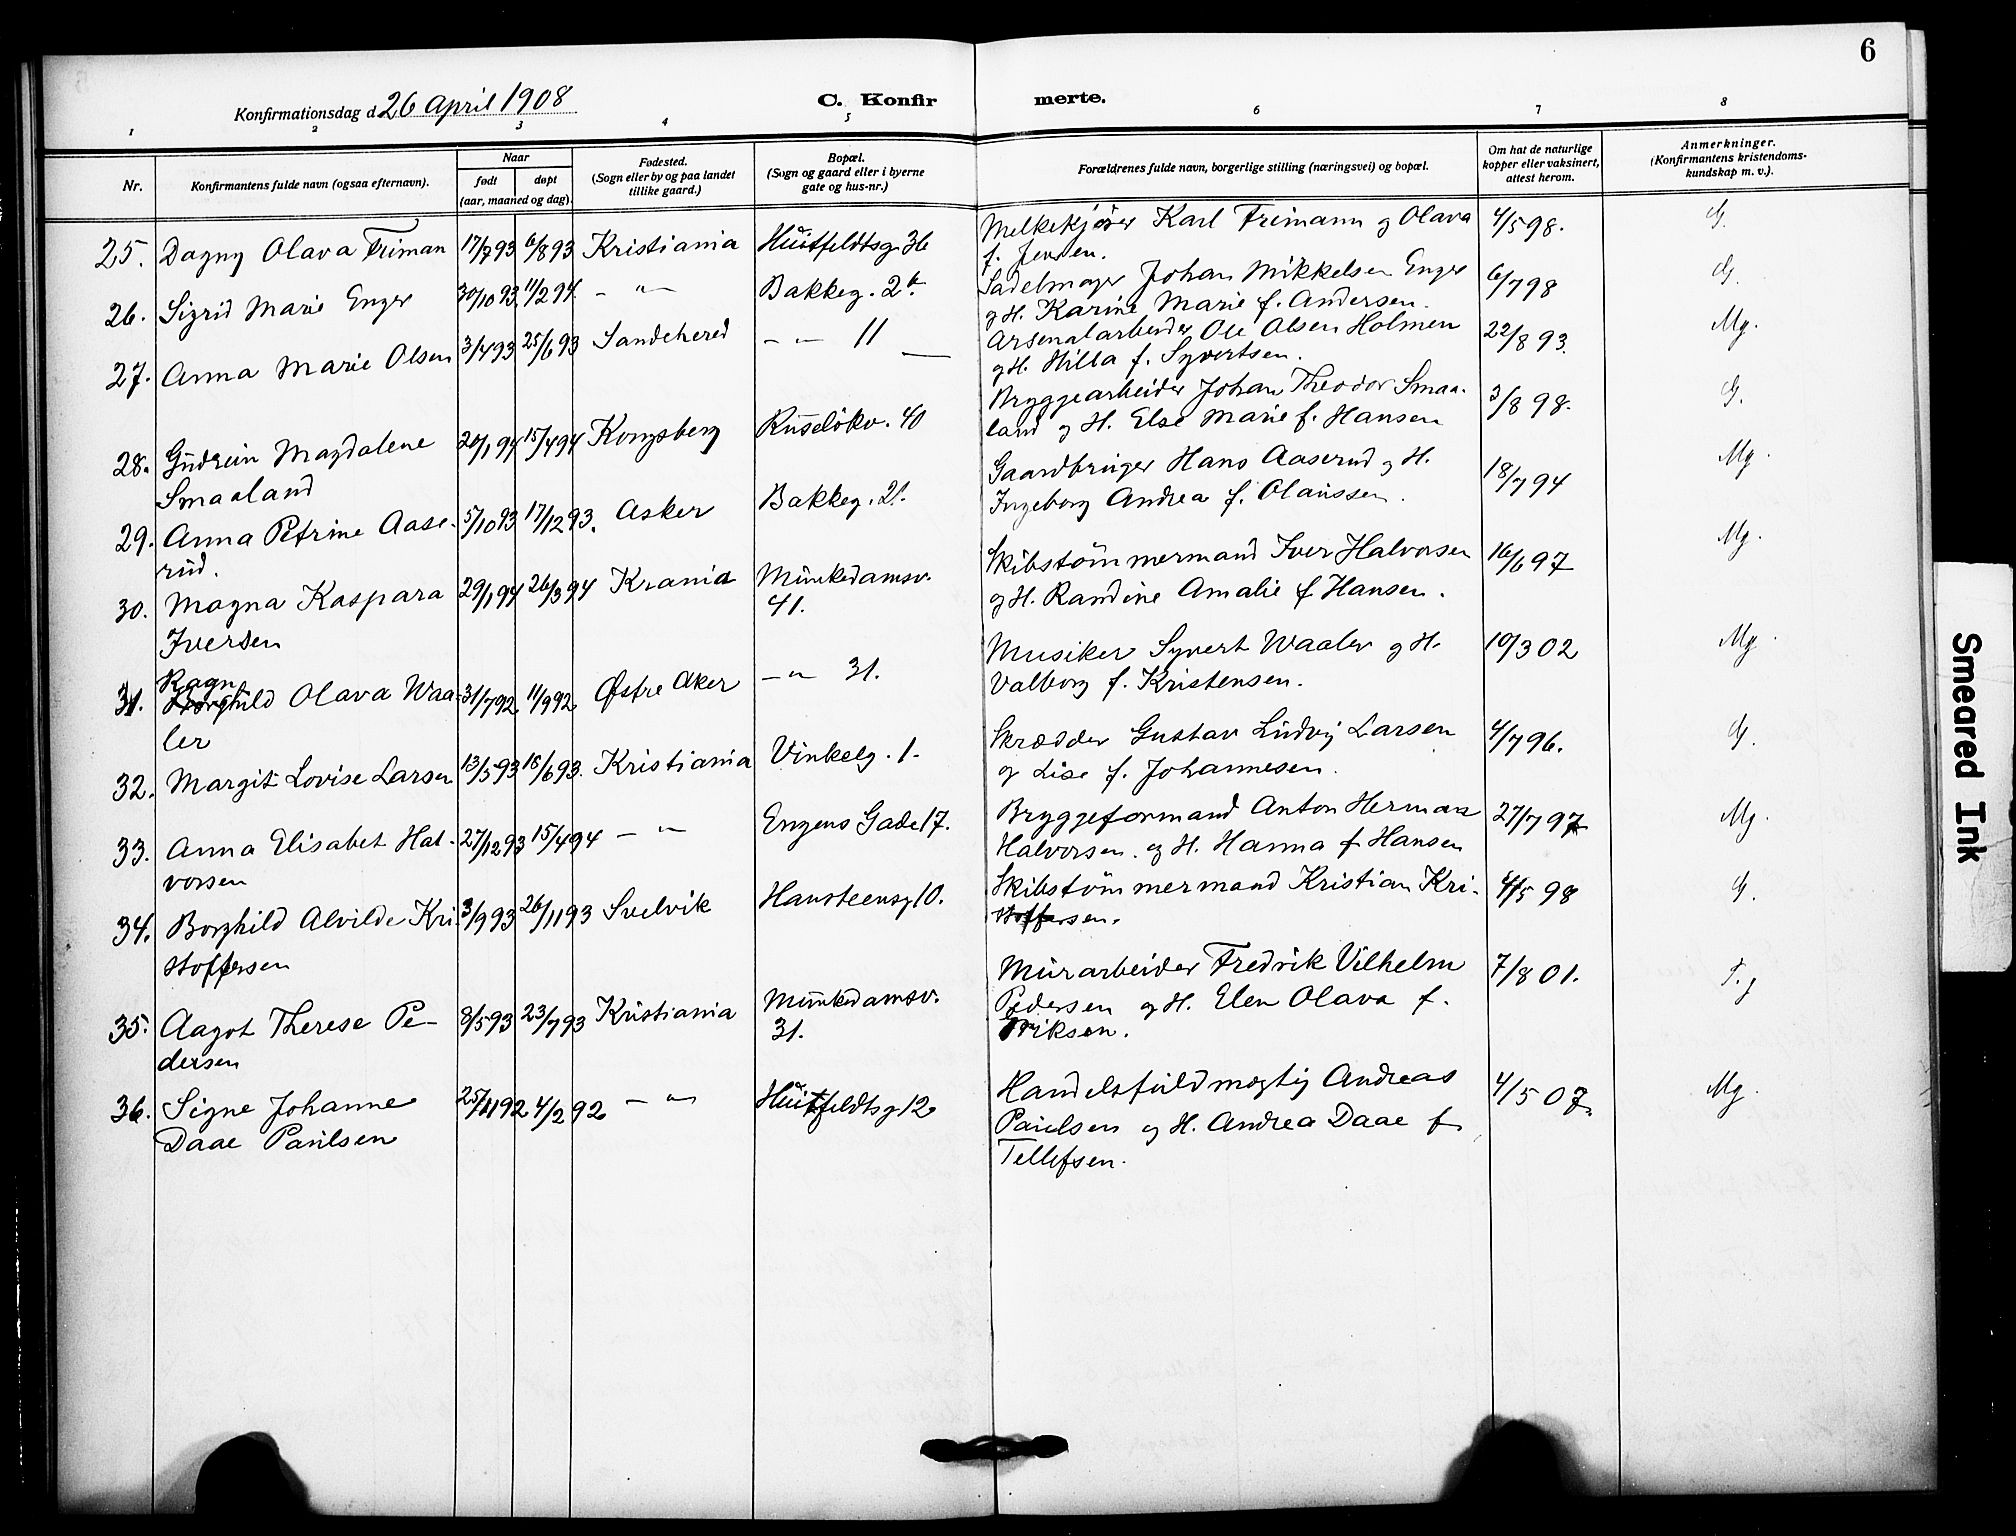 6
Konfirmationsdag d. 26 April 1908
C. Konfirmerte.
1 2 3 4 5 6 7 8
Nr.
Konfirmantens fulde navn (ogsaa efternavn).
Naar
født
døpt
(aar, maaned og dag).
Fødested.
(Sogn eller by og paa landet
tillike gaard.)
Bopæl.
(Sogn og gaard eller i byerne
gate og hus-nr.)
Forældrenes fulde navn, borgerlige stilling (næringsvei) og bopæl.
Om hat de naturlige
kopper eller vaksinert,
attest herom.
Anmerkninger.
(Konfirmantens kristendoms-
kundskap m. v.).
25. Dagny Olava Friman 17/7 93 6/8 93 Kristiania Huitfeldtsg. 36 Melkekjører Karl Freimann og Olava 4/5 98. G.
f. Jensen.
26. Sigrid Marie Enger 30/10 93 11/2 94 - " - Bakkeg. 2b. Sadelmager Johan Mikkelsen Enger 6/7 98 G.
og H. Karine Marie f. Andersen.
27. Anna Marie Olsen 3/4 93 25/6 93 Sandehered - " - 11 Arsenalarbeider Ole Olsen Holmen 22/8 93. Mg.
og H. Hilla f. Syvertsen.
28. Gudrun Magdalene 20/1 94 15/4 94 Kongsberg Ruseløkv. 40 Bryggearbeider Johan Theodor Smaa- 3/8 98. G.
Smaaland
land og H. Else Marie f. Hansen
29. Anna Petrine Aase- 5/10 93 17/12 93. Asker Bakkeg. 21. Gaardbruger Hans Aaserud og H. 18/7 94 Mg.
rud.
Ingeborg Andrea f. Olaussen.
30. Magna Kaspara 29/1 94 26/3 94 Krania Munkedamsv. Skibstømmermand Iver Halvorsen 16/6 97 Mg.
Iversen
41.
og H. Randine Amalie f. Hansen.
31. Ragnhild Olava Waa- 31/7 92 11/9 92 Østre Aker - " - 31. Musiker Syvert Waaler og H. 10/3 02 Mg.
ler
Valborg f. Kristensen.
32. Margit Lovise Larsen 13/5 93 18/6 93. Kristiania Vinkelg. 1. Skrædder Gustav Ludvig Larsen 4/7 96. G.
og Lise f. Johannesen.
33. Anna Elisabet Hal- 27/12 93 15/4 94 - " - Engens Gade 17. Bryggeformand Anton Herman 27/7 97 Mg.
vorsen
Halvorsen. og H. Hanna f. Hansen
34. Borghild Alvilde Kri- 3/9 93 26/11 93 Svelvik Hansteensg 10. Skibstømmermand Kristian Kri- 4/5 98 G.
stoffersen
stoffersen.
35. Aagot Therese Pe- 8/5 93 23/7 93 Kristiania Munkedamsv. Murarbeider Fredrik Vilhelm 7/8 01. T.g
dersen
31.
Pedersen og H. Elen Olava f.
Eriksen.
36. Signe Johanne 25/11 92 4/2 92 - " - Huitfeldtsg 12 Handelsfuldmægtig Andreas 4/5 07. Mg.
Daae Paulsen
Paulsen og H. Andrea Daae f.
Tellefsen.
Smeared Ink